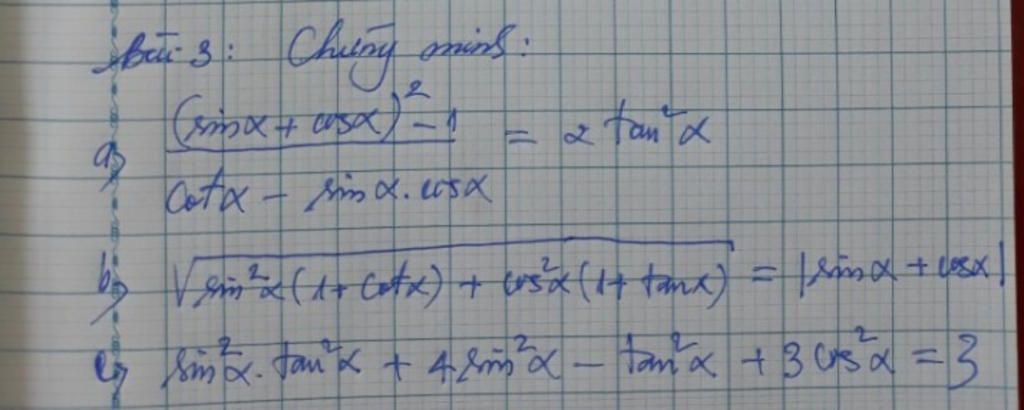 Bài 3: Chứng minh:
a) \frac{(sinα + cosα)^2 - 1}{cotα - sinα.cosα} = 2 tan^2α
b) \sqrt{sin^2α(1 + cotα) + cos^2α(1 + tanα)} = |sinα + cosα|
c) sin^2α.tan^2α + 4sin^2α - tan^2α + 3cos^2α = 3